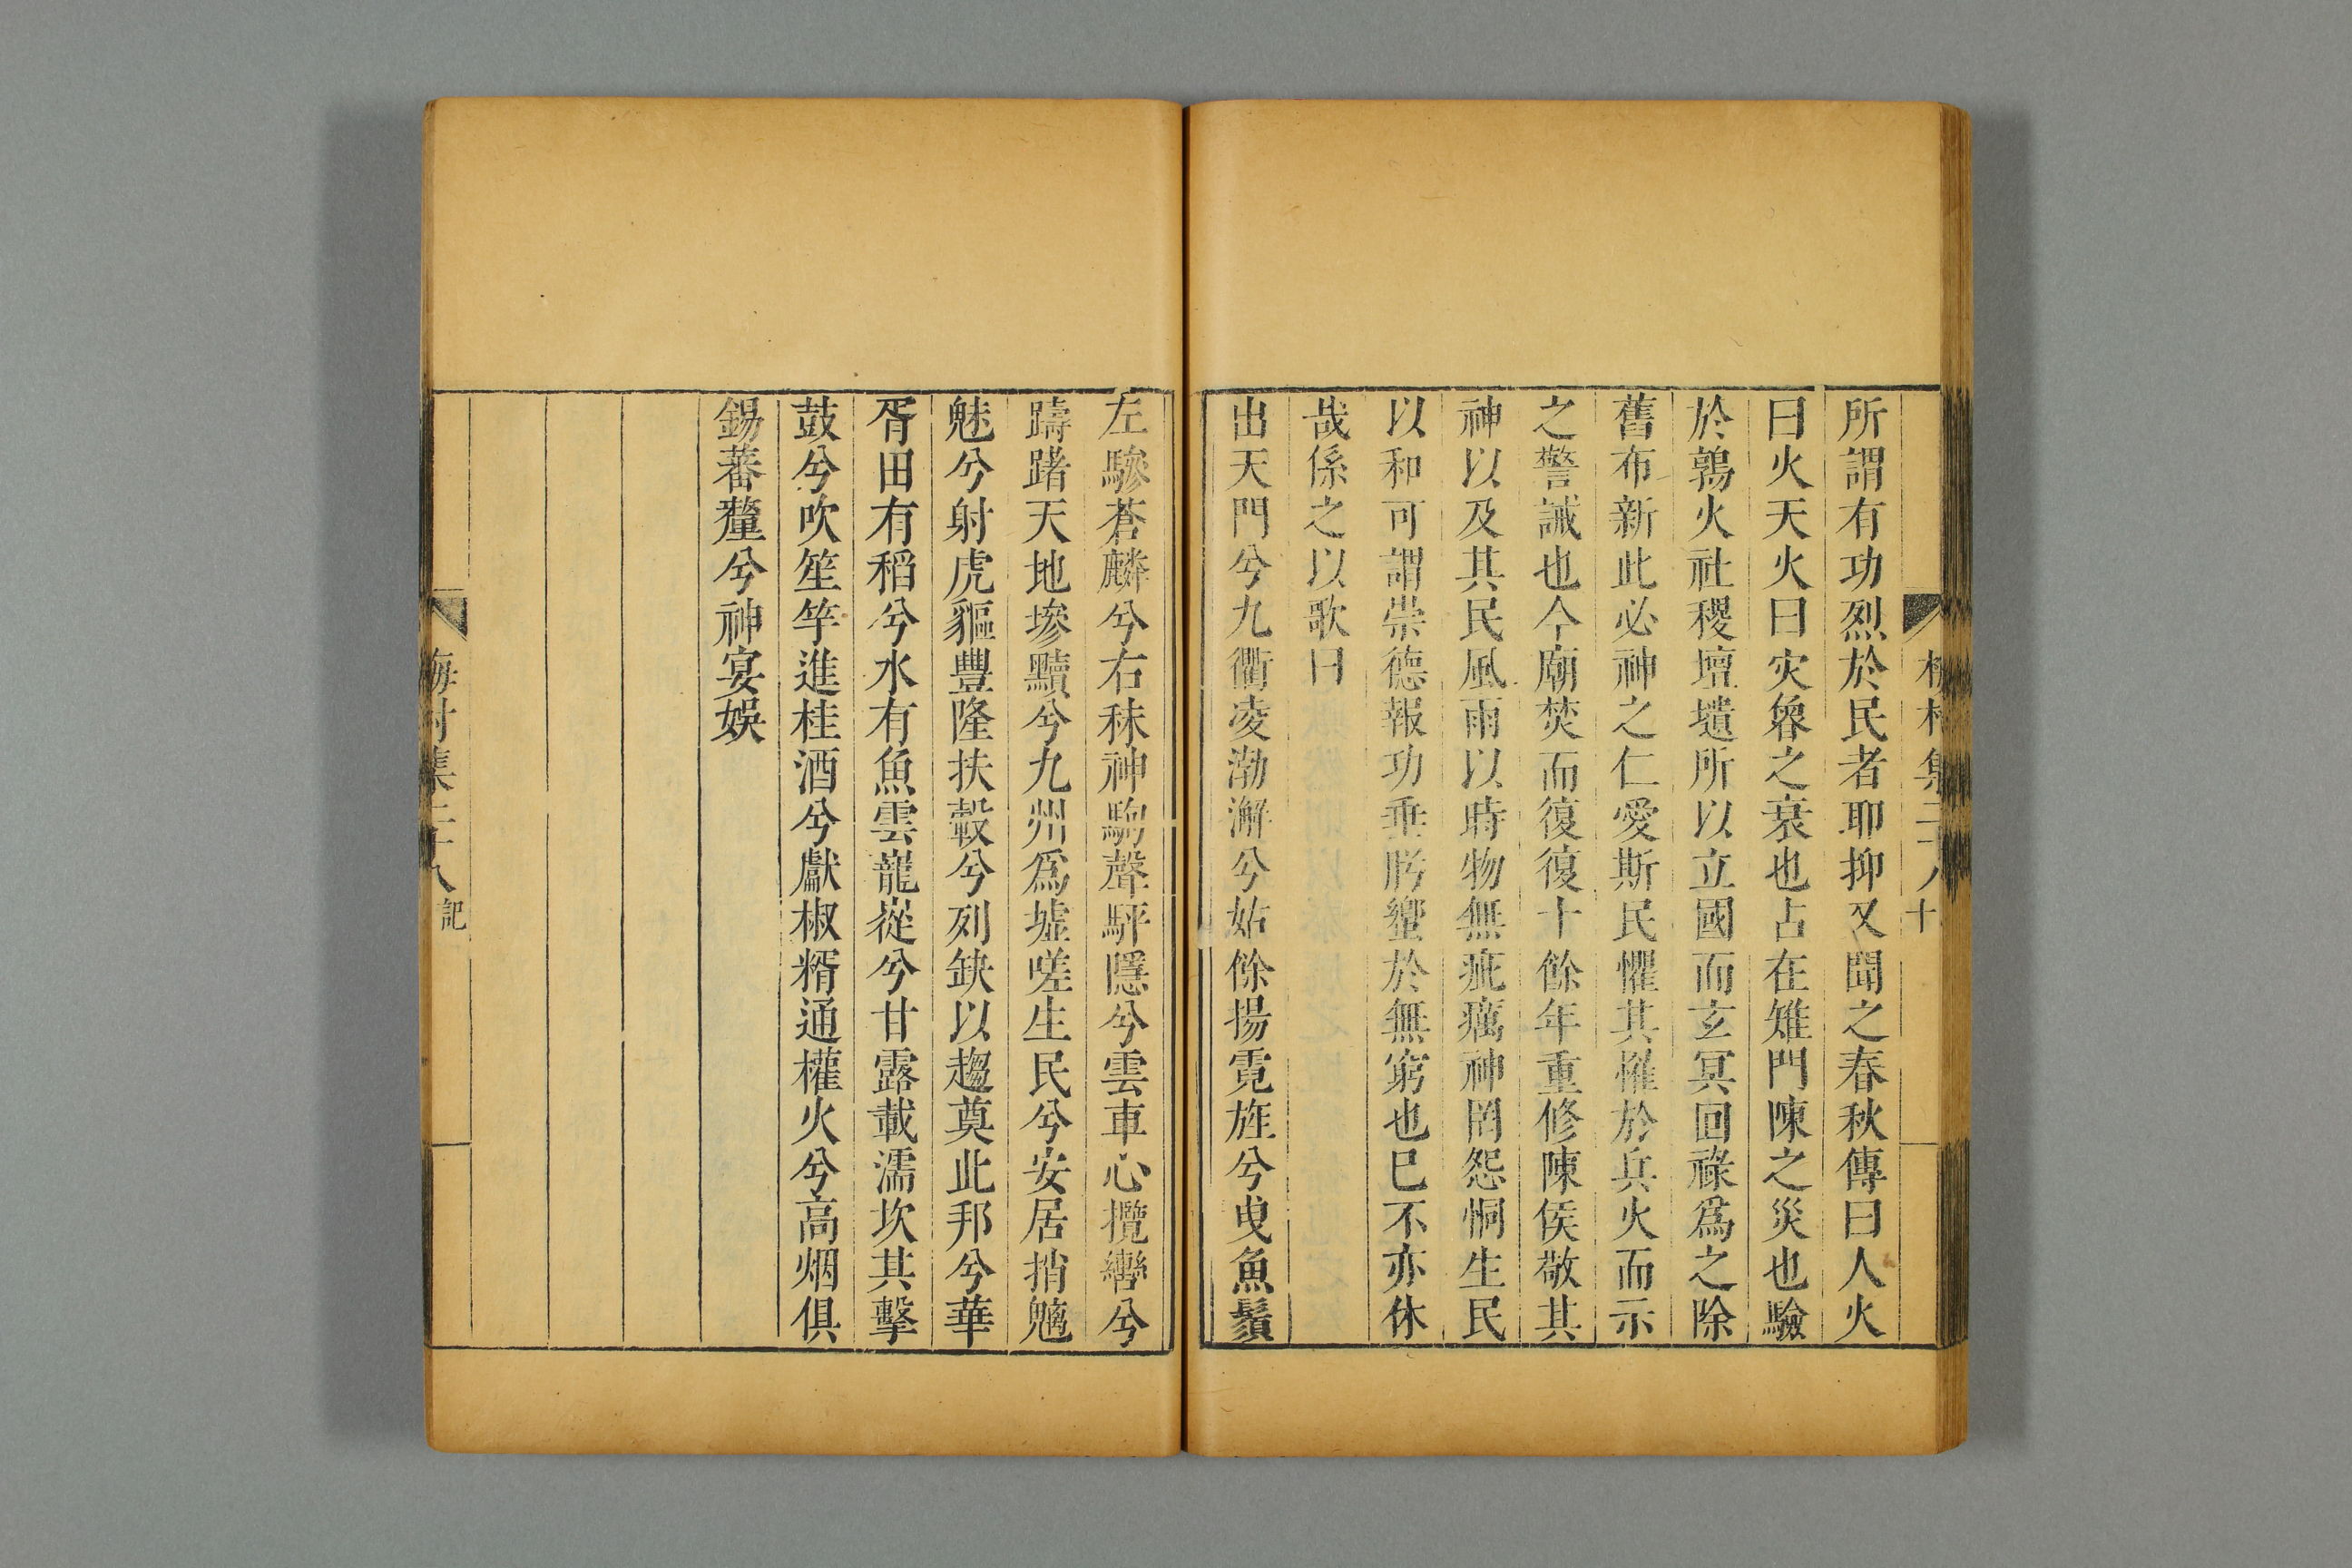 所謂有功烈於民者耶抑又聞之春秋傳曰人火
曰火天火曰灾象之衰也占在雉門陳之災也驗
於鶉火社稷壇壝所以立國而玄冥回祿爲之除
舊布新此必神之仁愛斯民懼其懽於兵火而示
之警誡也今廟焚而復復十餘年重修陳侯敬其
神以及其民風雨以時物無疵癘神罔怨恫生民
以和可謂崇德報功垂肹蠁於無窮也巳不亦休
哉係之以歌曰
出天門兮九衢凌渤澥兮姑餘揚霓旌兮曳魚鬚
左驂蒼麟兮右秣神駒聲駍隱兮雲車心攬轡兮
躊躇天地墋黷兮九州爲墟嗟生民兮安居捎魑
魅兮射虎貙豐隆扶轂兮列缺以趨奠此邦兮華
胥田有稻兮水有魚雲巃嵸兮甘露載濡坎其擊
鼓兮吹笙竽進桂酒兮獻椒糈通權火兮高烟俱
錫蕃釐兮神宴娛
梅村集二十八 記